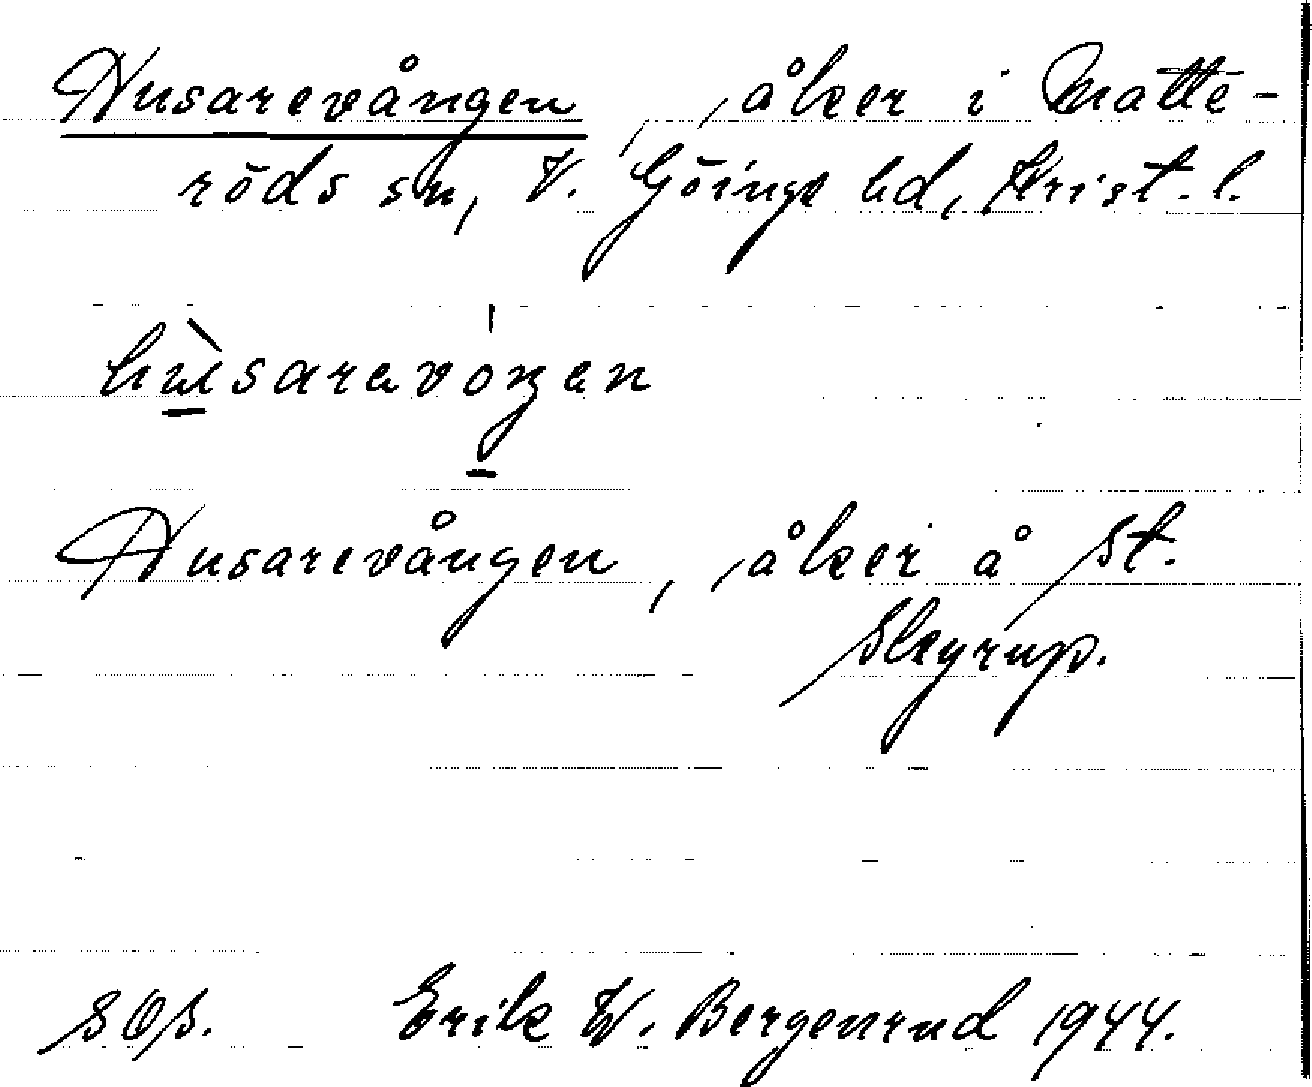 Husarevången, åker i Matte-
röds sn, V. Göinge hd, Krist. l.
Husarevången, åker å St.
Skyrup.
SOS. Erik W. Bergenrud 1944.